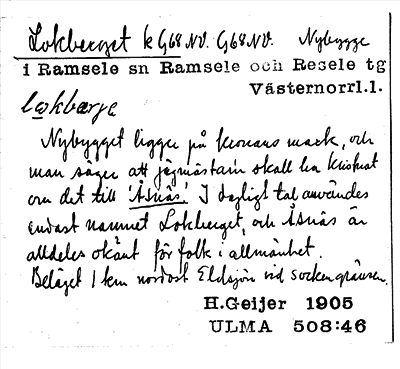 Lokberget k G68NV. G68NV. Nybygge
i Ramsele sn Ramsele och Resele tg
Västernorrl.l.
Nybygget ligger på kronans mark, och
man säger att jägmästarn skall ha kristnat
om det till 'Åsnäs'. I dagligt tal användes
endast namnet Lokberget, och Åsnäs är
alldeles okänt för folk i allmänhet.
Beläget 1 km nordost Eldsjön vid sockengränsen.
H.Geijer 1905
ULMA 508:46